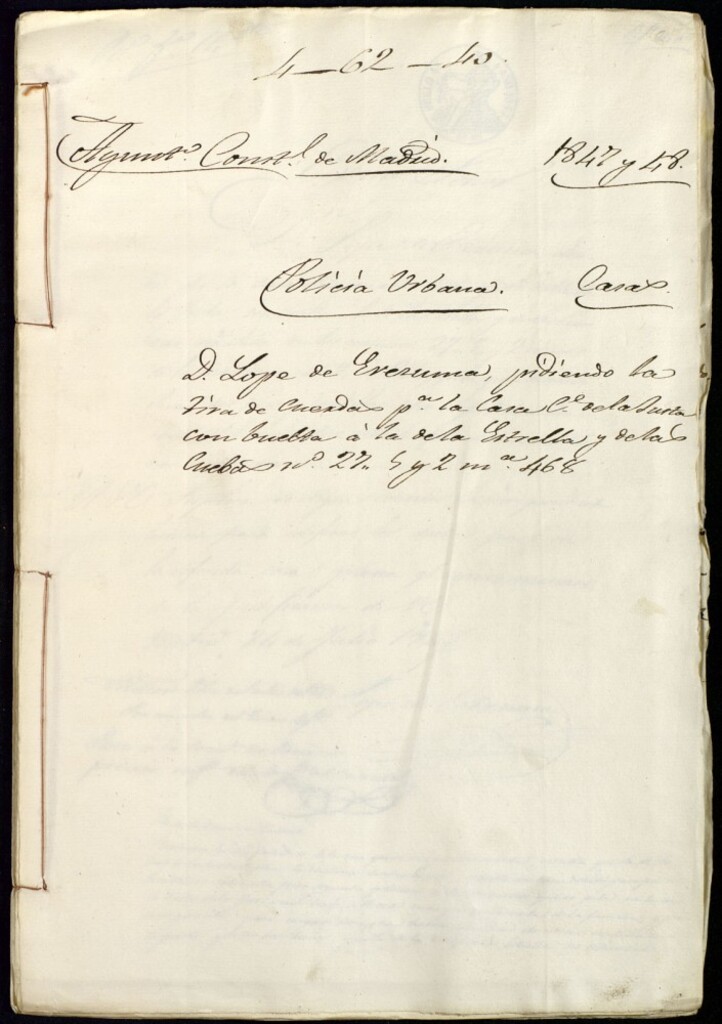 4-62-40.
Ayuntº. Constl. de Madrid. 1847 y 48.
Policia Urbana. Casas.
D. Lope de pidiendo la
tira de cuerdas pª. la Casa C.e de la
con buelta á la de la Estrella y de las
Cuebas nº. 27 y 2 mª. 468